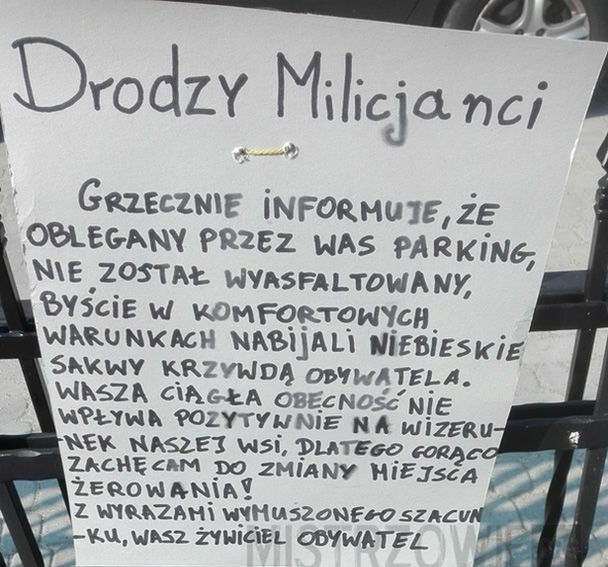 Drodzy Milicjanci
GRZECZNIE INFORMUJE, ŻE
OBLEGANY PRZEZ WAS PARKING,
NIE ZOSTAŁ WYASFALTOWANY,
BYŚCIE W KOMFORTOWYCH
WARUNKACH NABIJALI NIEBIESKIE
SAKWY KRZYWDĄ OBYWATELA.
WASZA CIĄGŁA OBECNOŚĆ NIE
WPŁYWA POZYTYWNIE NA WIZERU-
-NEK NASZEJ WSI, DLATEGO GORĄCO
ZACHĘCAM DO ZMIANY MIEJSCA
ŻEROWANIA!
Z WYRAZAMI WYMUSZONEGO SZACUN
-KU, WASZ ŻYWICIEL OBYWATEL